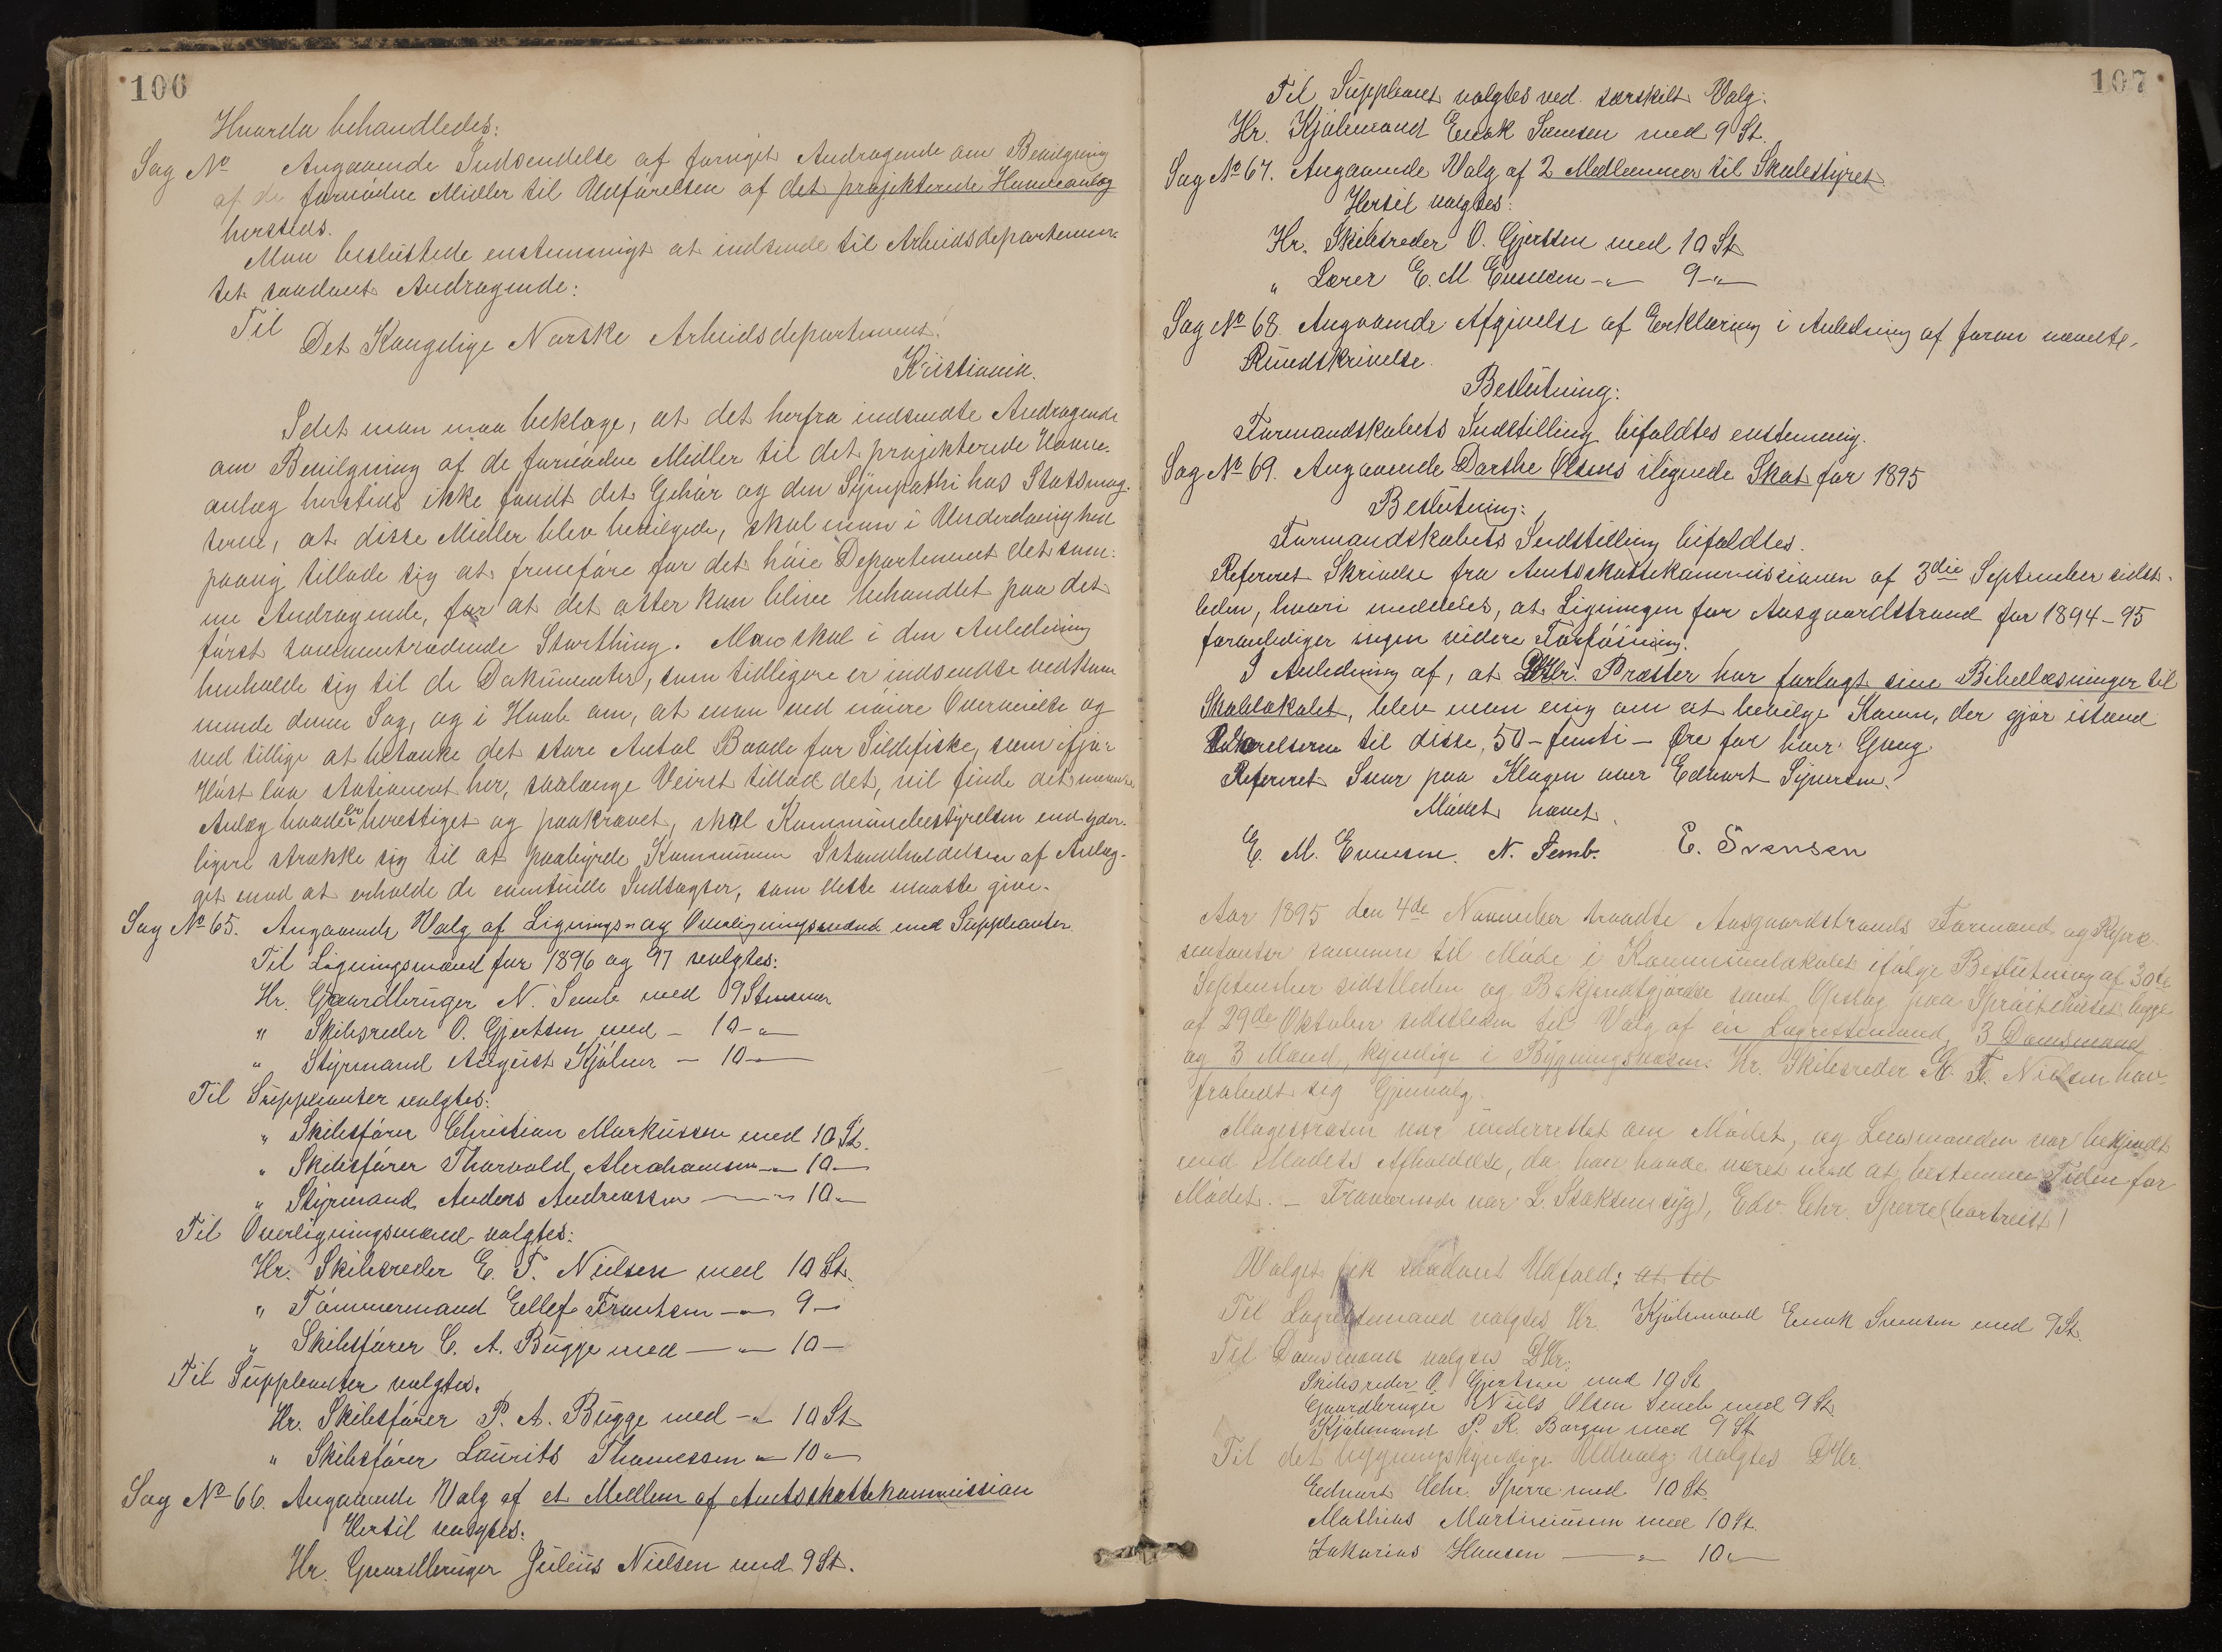 106
Hvorda behandledes:
Sag No Angaaende Indsendelse af fornyet Andragende om Bevilgning
af de fornødne Midler til Udførelsen af det projekterede Havneanlæg
hersteds.
Man besluttede enstemmigt at indsende til Arbeidsdepartemen-
tet saadant Andragende:
Til
Det Kongelige Norske Arbeidsdepartement!
Kristiania.
Idet man maa beklage, at det herfra indsendte Andragende
om Bevilgning af de fornødne Midler til det projekterede Havne-
anlæg hersteds ikke fandt det Gehør og den Sympathi hos Statsmag-
terne, at disse Midler blev bevilgede, skal man i Underdanighed
paany tillade sig at fremføre for det høie Departement det sam-
me Andragende, for at det atter kan blive behandlet paa det
først sammentrædende Storthing. Man skal i den Anledning
henholde sig til de Dokumenter, som tidligere er indsendte vedkom-
mende denne Sag, og i Haab om, at man ved nøiere Overveielse og
ved tillige at betænke det store Antal Baade for Sildefiske, som ifjor
Høst laa stationeret her, saalænge Veiret tillod det, vil finde det nævnte
Anlæg baade er berettiget og paakrævet, skal Kommunebestyrelsen end yder-
ligere strække sig til at paabyrde Kommunen Istandholdelsen af Anlæg-
get mod at erholde de eventuelle Indtægter, som dette maatte give.
Sag No 65. Angaaende Valg af Lignings- og Overligningsmænd med Suppleanter.
Til Ligningsmænd for 1896 og 97 valgtes:
Hr. Gaardbruger N. Semb med 9 Stemmer
" Skibsreder O. Gjertsen med - 10 - "
" Styrmand August Kjølner - 10 -
Til Suppleanter valgtes:
" Skibsfører Christian Markussen med 10 St.
" Skibsfører Thorvald Abrahamsen - 10 -
" Styrmand Anders Andreassen - " - 10 -
Til Overligningsmænd valgtes:
Hr. Skibsreder E. T. Nielsen med 10 St.
" Tømmermand Ellef Frantsen - " - 9 -
" Skibsfører C. A. Bugge med - " - 10 -
Til Suppleanter valgtes.
Hr. Skibsfører P. A. Bugge med - " 10 St
" Skibsfører Laurits Thomessen - " 10 -
Sag No 66. Angaaende Valg af et Medlem af Amtsskattekommission
Hertil valgtes:
Hr. Gaardbruger Julius Nielsen med 9 St.
107
Til Suppleant valgtes ved særskilt Valg:
Hr. Kjøbmand Enok Svensen med 9 St.
Sag No 67. Angaaende Valg af 2 Medlemmer til Skolestyret
Hertil valgtes:
Hr. Skibsreder O. Gjertsen med 10 St
" Lærer E. M. Evensen - " - 9 - " -
Sag No 68. Angaaende Afgivelse af Erklæring i Anledning af foran nævnte
Rundskrivelse.
Beslutning:
Formandskabets Indstilling bifaldtes enstemmig.
Sag No 69. Angaaende Dorthe Olsens ilignede Skat for 1895
Beslutning:
Formandskabets Indstilling bifaldtes.
Refereret Skrivelse fra Amtsskattekommissionen af 3die September sidst-
leden, hvori meddeles, at Ligningen for Aasgaardstrand for 1894-95
foranlediger ingen videre Forføining.
I Anledning af, at DHr. Præster har forlagt sine Bibellæsninger til
Skolelokalet, blev man enig om at bevilge Konen, der gjør istand
Værelserne til disse, 50 - femti - Øre for hver Gang.
Refereret Svar paa Klagen over Edvart Syversen.
Mødet hævet.
E. M. Evensen. N. Semb. E. Svensen
Aar 1895 den 4de November traadte Aasgaardstrands Formænd og Repræ-
sentanter sammen til Møde i Kommunelokalet ifølge Beslutning af 30te
September sidstleden og Bekjendtgjørelse samt Opslag paa Sprøitehuset begge
af 29de Oktober sidstleden til Valg af en Lagrettemand, 3 Domsmænd
og 3 Mænd, kyndige i Bygningsvæsen. Hr. Skibsreder E. T. Nielsen hav-
frabedt sig Gjenvalg.
Magistraten var underrettet om Mødet, og Lensmanden var bekjendt
med Mødets Afholdelse, da han havde været med at bestemme Tiden for
Mødet. - Fraværende var L. Isaksen (syg), Edv. Chr. Sperre (bortreist)
Valget fik saadant Udfald: at til
Til Lagrettemand valgtes Hr. Kjøbmand Enok Svensen med 9 St.
Til Domsmænd valgtes DHr:
Skibsreder O. Gjertsen med 10 St
Gaardbruger Niels Olsen Semb med 9 St.
Kjøbmand P. R. Borgen med 9 St
Til det bygningskyndige Udvalg valgtes DHr.
Edvart Chr. Sperre med 10 St.
Mathias Martiniussen med 10 St.
Zakarias Hansen - " - 10 "